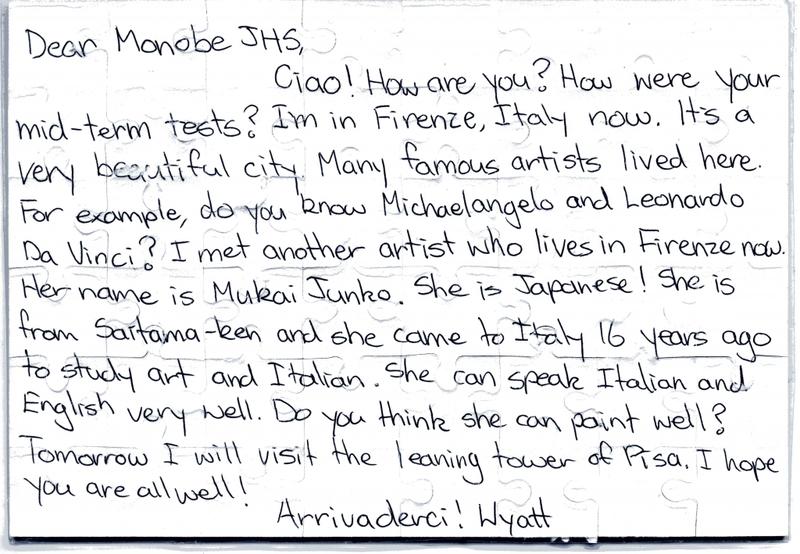 Dear Monobe JHS,
Ciao! How are you? How were your
mid-term tests? I'm in Firenze, Italy now. It's a
very beautiful city. Many famous artists lived here.
For example, do you know Michaelangelo and Leonardo
Da Vinci? I met another artist who lives in Firenze now.
Her name is Mukai Junko. She is Japanese! She is
from Saitama-ken and she came to Italy 16 years ago
to study art and Italian. She can speak Italian and
English very well. Do you think she can paint well?
Tomorrow I will visit the leaning tower of Pisa. I hope
you are all well!
Arrivaderci! Wyatt